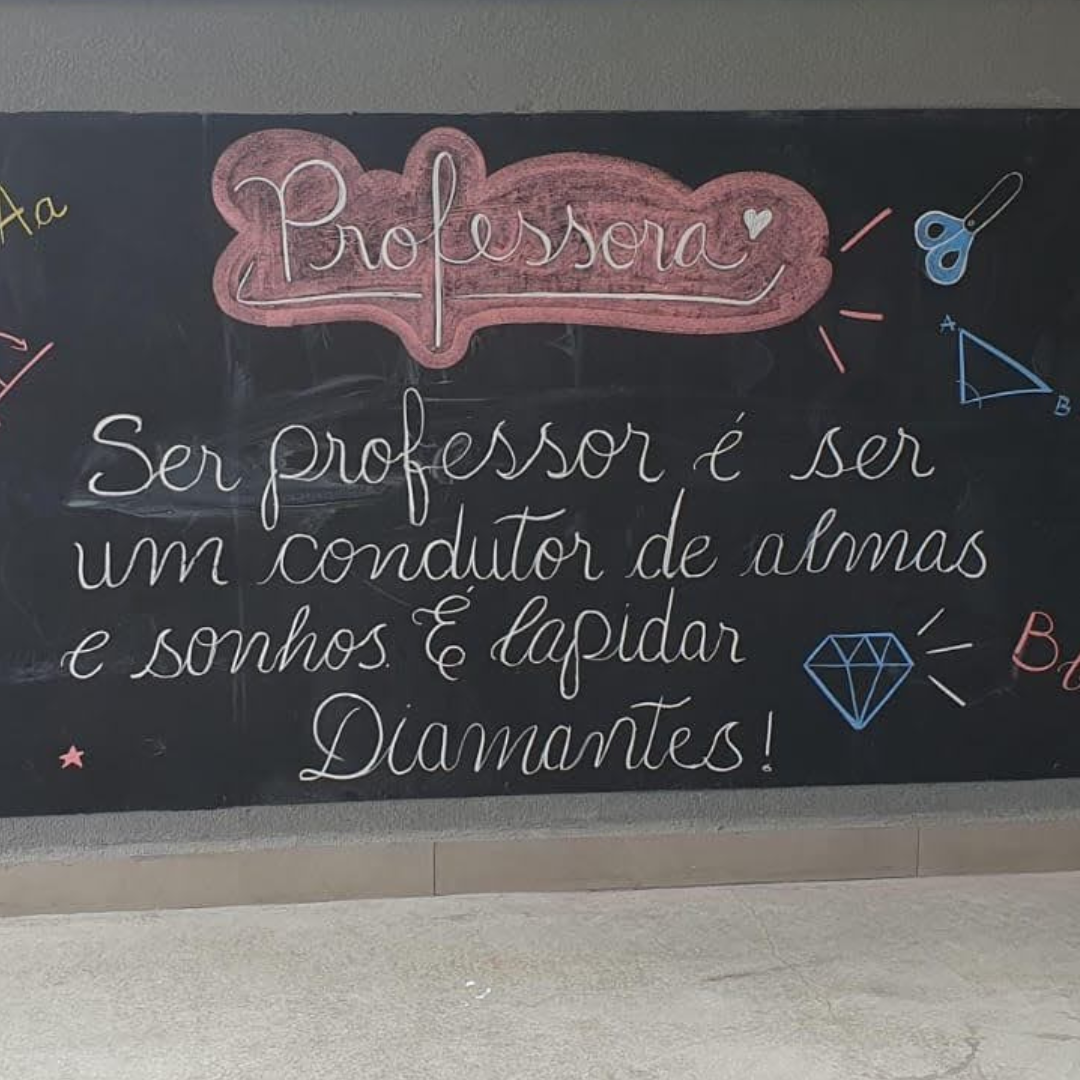 Aa
Professora
A
B
Ser professor é ser
um condutor de almas
e sonhos. É lapidar
Diamantes!
B